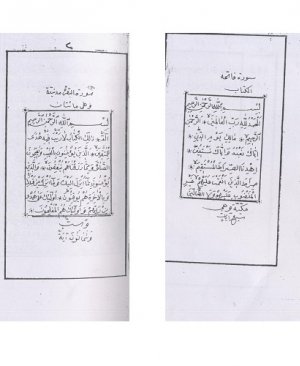 سورة فاتحة
الكتاب
بسم الله الرحمن الرحيم
الحمد لله رب العالمين الرحمن
الرحيم مالك يوم الدين
إياك نعبد وإياك نستعين
اهدنا الصراط المستقيم
صراط الذين أنعمت عليهم غير
المغضوب عليهم ولا الضالين
مكية وهي
سبع آيات
٢
سورة البقرة مدنية
وهي مائتان
بسم الله الرحمن الرحيم
الم ذلك الكتاب لا ريب فيه هدى
للمتقين الذين يؤمنون بالغيب ويقيمون
الصلاة ومما رزقناهم ينفقون والذين
يؤمنون بما أنزل إليك وما أنزل من قبلك
وبالآخرة هم يوقنون أولئك على هدى
من ربهم وأولئك هم المفلحون
وست
وثمانون آية